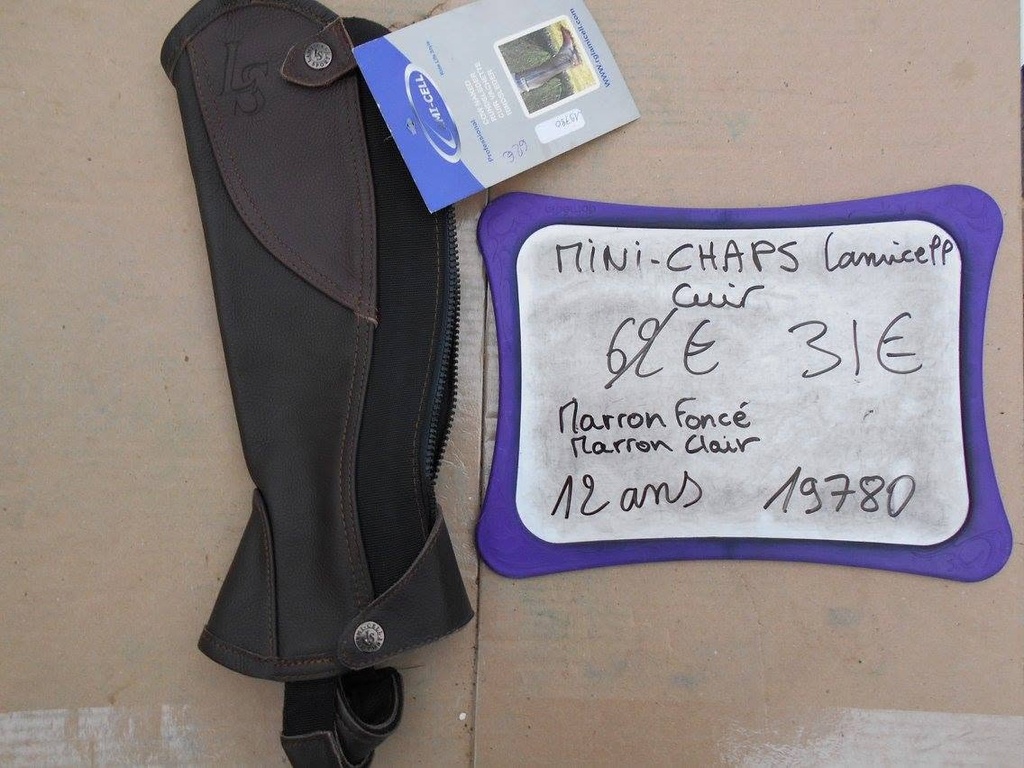 LS
www.lamicell.com
MI-CELL
Professional
19780
62€
MINI-CHAPS Lamicell
Cuir
62 € 31€
Marron Foncé
Marron Clair
12 ans 19780